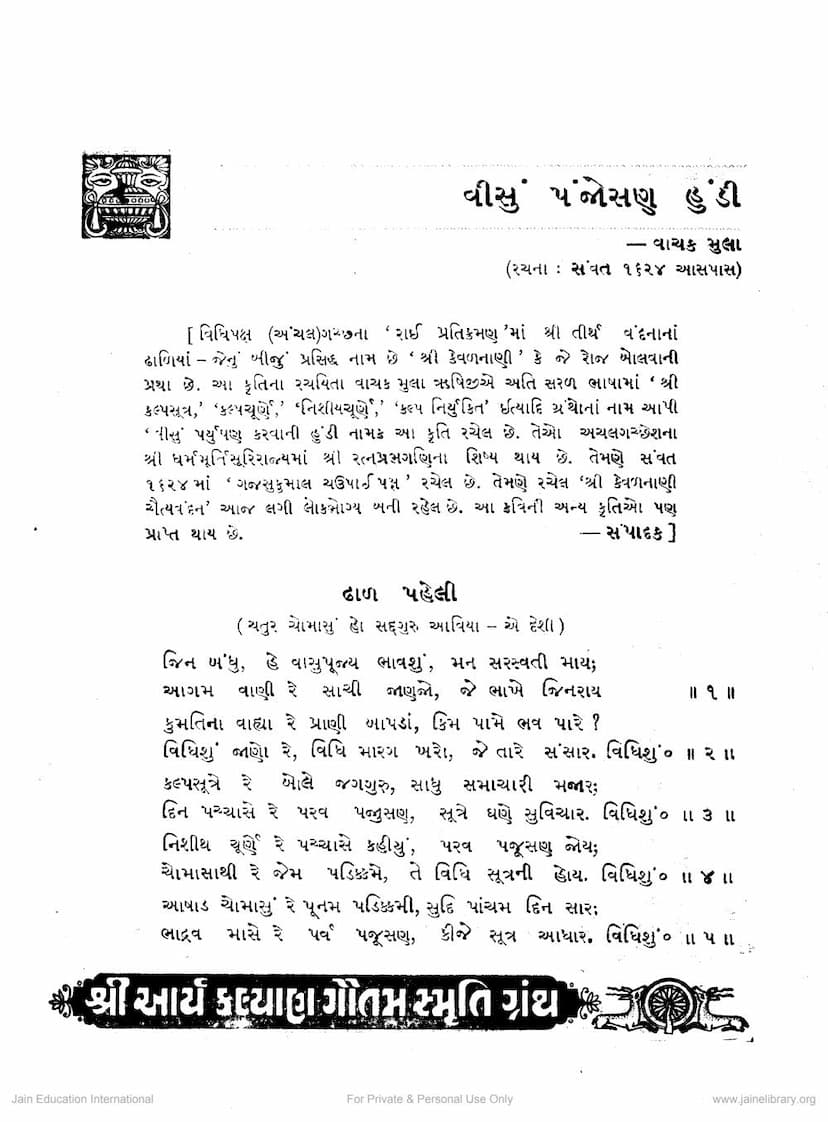 વીસું પંજોસણુ હુંડી
— વાચક મુલા
(રચના : સંવત ૧૬૨૪ આસપાસ)
[ વિધિપક્ષ (અંચલ)ગચ્છના ‘ રાઈ પ્રતિક્રમણ ’માં શ્રી તીર્થ વંદનાનાં
ઢાળિયાં – જેનું બીજું પ્રસિદ્ધ નામ છે ‘ શ્રી કેવળનાણી ’ કે જે રોજ બોલવાની
પ્રથા છે. આ કૃતિના રચયિતા વાચક મુલા ઋષિજીએ અતિ સરળ ભાષામાં ‘ શ્રી
કલ્પસૂત્ર,’ ‘કલ્પચૂર્ણે,’ ‘નિશીયચૂર્ણે,’ ‘કલ્પ નિર્યુકિત’ ઈત્યાદિ ગ્રંથોનાં નામ આપી
‘ વીસું પર્યુષણ કરવાની હુંડી નામક આ કૃતિ રચેલ છે. તેઓ અચલગચ્છેશના
શ્રી ધર્મમૂર્તિસૂરિરાજ્યમાં શ્રી રત્નપ્રસગણિના શિષ્ય થાય છે. તેમણે સંવત
૧૬૨૪ માં ‘ ગજસુકુમાલ ચઉપાઈ પક્ષ ’ રચેલ છે. તેમણે રચેલ ‘શ્રી કેવળનાણી
ચૈત્યવંદન’ આજ લગી લોકભોગ્ય બની રહેલ છે. આ કવિની અન્ય કૃતિઓ પણ
પ્રાપ્ત થાય છે. — સંપાદક ]
ઢાળ પહેલી
( ચતુર ચોમાસું હો સદ્દગુરુ આવિયા – એ દેશી )
જિન બંધુ, હે વાસુપૂજ્ય ભાવશું, મન સરસ્વતી માય;
આગમ વાણી રે સાચી જાણજો, જે ભાખે જિનરાય ॥ ૧ ॥
કુમતિના વાહ્યા રે પ્રાણી બાપડાં, કિમ પામે ભવ પારે ?
વિધિશું જાણો રે, વિધિ મારગ ખરો, જે તારે સંસાર. વિધિશું૦ ॥ ૨ ॥
કલ્પસૂત્રે રે બોલે જગગુરુ, સાધુ સમાચારી મજાર;
દિન પચ્ચાસે રે પરવ પજીસણ, સૂત્રે ઘણે સુવિચાર. વિધિશું૦ ॥ ૩ ॥
નિશીથ ચૂર્ણે રે પચ્ચાસે કહીયું, પરવ પજૂસણ જોય;
ચોમાસાથી રે જેમ પડિક્કમે, તે વિધિ સૂત્રની હોય. વિધિશું૦ ॥ ૪ ॥
આષાડ ચોમાસું રે પૂનમ પડિક્કમી, સુદિ પાંચમ દિન સાર;
ભાદ્રવ માસે રે પર્વ પજૂસણ, કીજે સૂત્ર આધાર. વિધિશું૦ ॥ ૫ ॥
શ્રી આર્ય કલ્યાણ ગૌતમ સ્મૃતિ ગ્રંથ
Jain Education International For Private & Personal Use Only www.jainelibrary.org